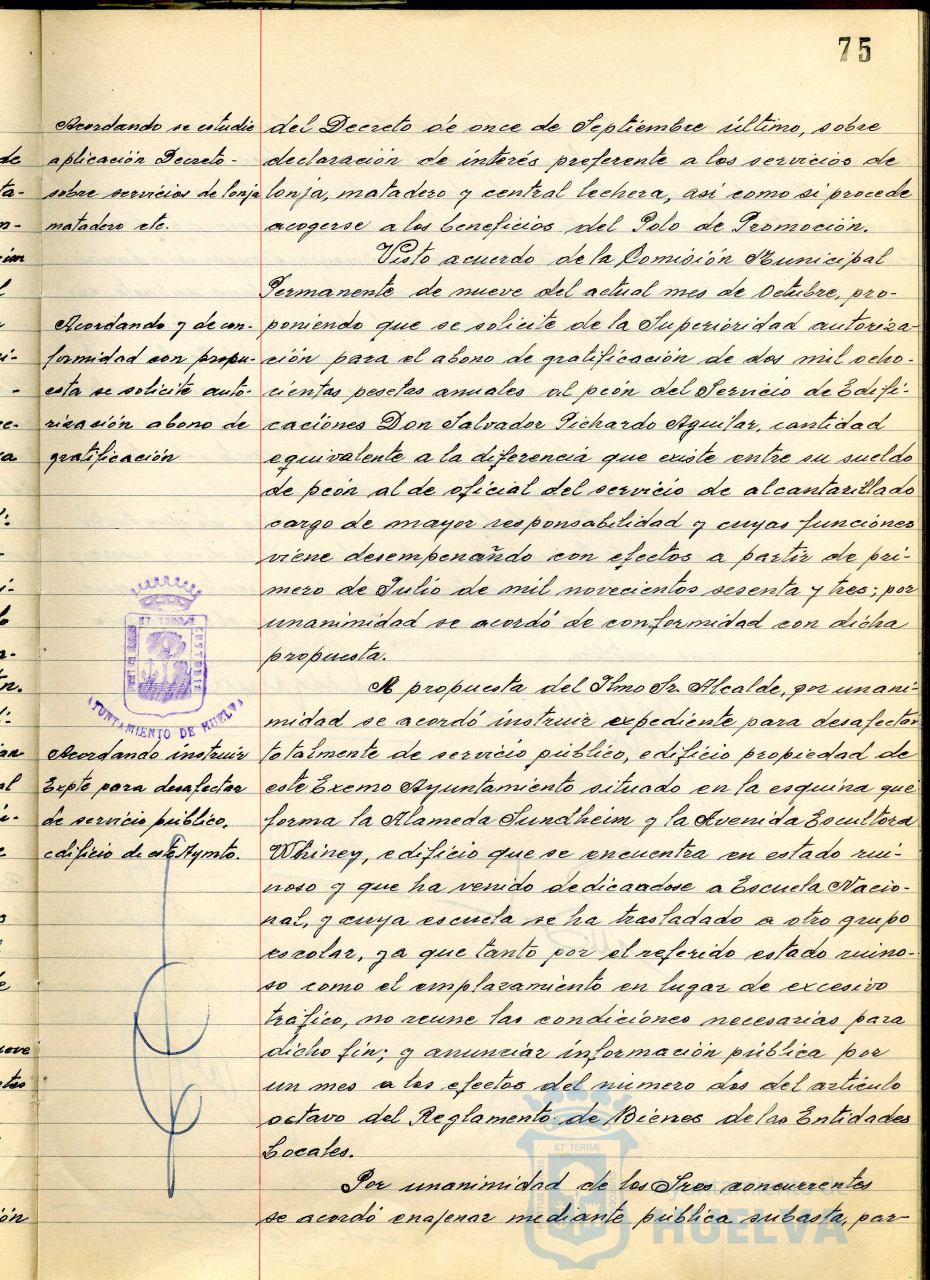 75
Acordando se estudie
aplicación Decreto-
sobre servicios de lonja
matadero etc.
del Decreto de once de Septiembre último, sobre
declaración de interés preferente a los servicios de
lonja, matadero y central lechera, así como si procede
acogerse a los beneficios del Polo de Promoción.
Visto acuerdo de la Comisión Municipal
Permanente de nueve del actual mes de Octubre, pro-
Acordando y de con-
formidad con propu-
esta se solicite auto-
rización abono de
gratificación
poniendo que se solicite de la Superioridad autoriza-
ción para el abono de gratificación de dos mil ocho-
cientas pesetas anuales al peón del Servicio de Edifi-
caciónes Don Salvador Pichardo Aguilar, cantidad
equivalente a la diferencia que existe entre su sueldo
de peón al de oficial del servicio de alcantarillado
cargo de mayor responsabilidad y cuyas funciónes
viene desempenañdo con efectos a partir de pri-
mero de Julio de mil novecientos sesenta y tres; por
unanimidad se acordó de conformidad con dicha
propuesta.
ET TERRÆ
CUSTODIA
AYUNTAMIENTO DE HUELVA
A propuesta del Ilmo Sr. Alcalde, por unani-
midad se acordó instruir expediente para desafectar
Acordando instruir
Expte para desafectar
de servicio público,
edificio de este Aymto.
totalmente de servicio público, edificio propiedad de
este Excmo Ayuntamiento situado en la esquina que
forma la Alameda Sundheim y la Avenida Escultora
Whiney, edificio que se encuentra en estado rui-
noso y que ha venido dedicandose a Escuela Nacio-
nal, y cuya escuela se ha trasladado a otro grupo
escolar, ya que tanto por el referido estado ruino-
so como el emplazamiento en lugar de excesivo
tráfico, no reune las condiciónes necesarias para
dicho fin; y anunciar información pública por
un mes a los efectos del número dos del artículo
octavo del Reglamento de Bienes de las Entidades
Locales.
Por unanimidad de los Sres concurrentes
se acordó enajenar mediante pública subasta, par-
ET TERRÆ
Ayuntamiento de
HUELVA